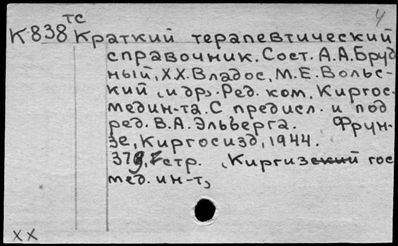 тс
К838 Краткий терапевтический
справочник. Сост. А.А.Бруд
ный, Х.Х.Владос, М.Е.Вольс-
кий (и др). Ред. ком. Киргос-
медин-та. С предисл. и под
ред. В.А.Эльберга. Фрун-
зе, Киргосизд, 1944.
стр. (Киргизский гос
мед. ин-т)
ХХ